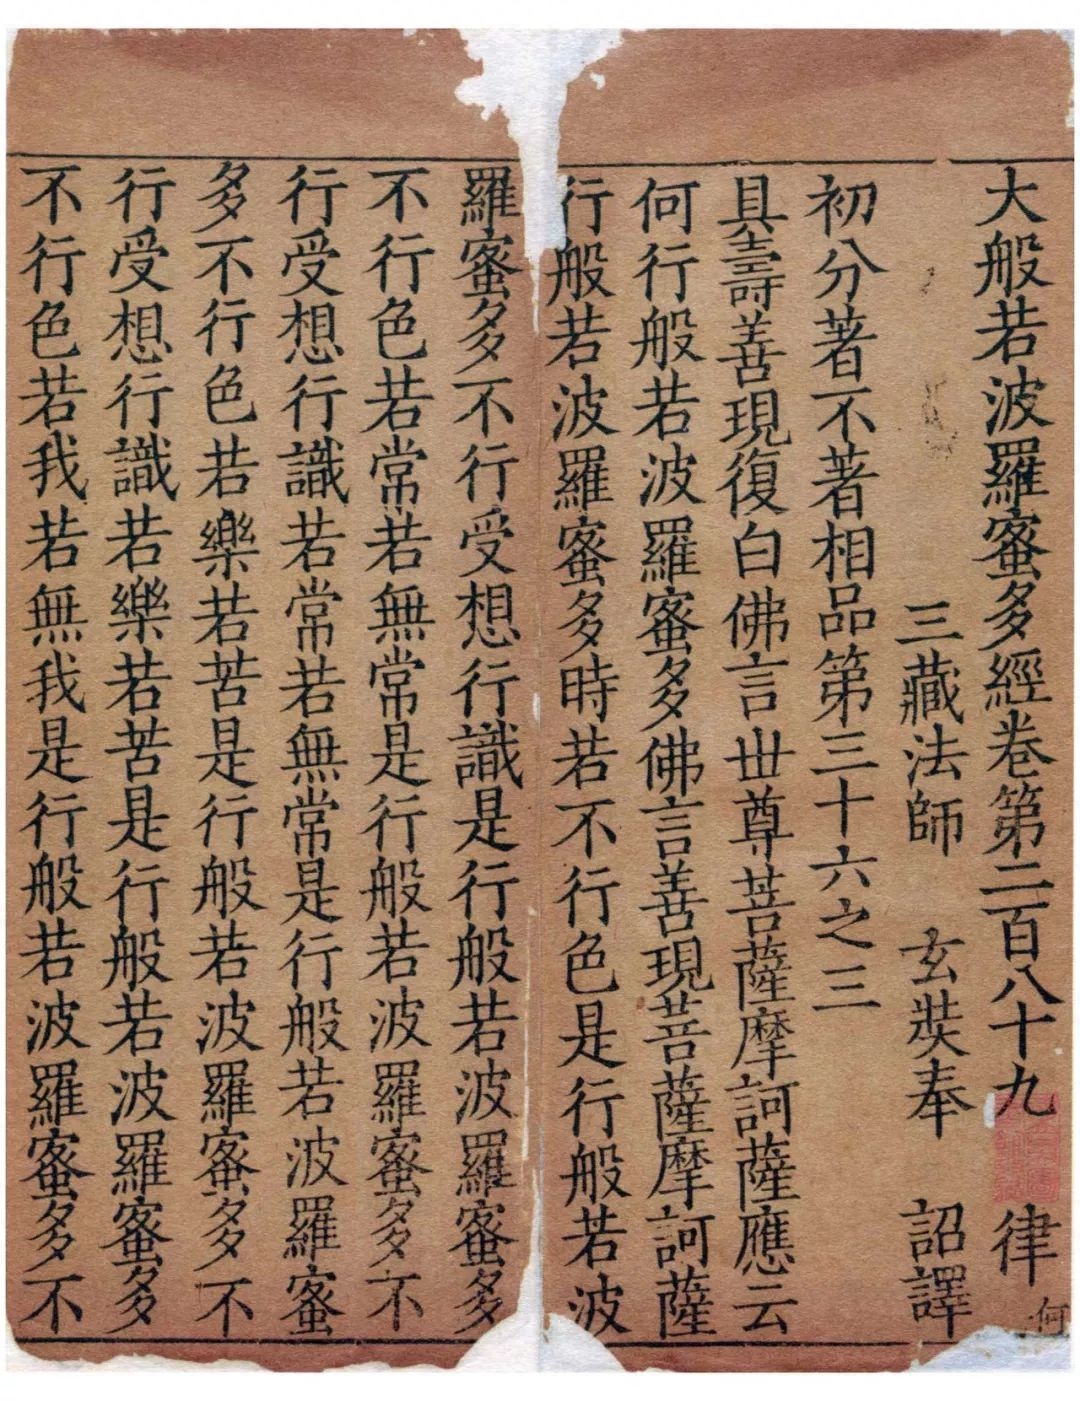 大般若波羅蜜多經卷第二百八十九 律
三藏法師 玄奘奉 詔譯
初分著不著相品第三十六之三
具壽善現復白佛言世尊菩薩摩訶薩應云
何行般若波羅蜜多佛言善現菩薩摩訶薩
行般若波羅蜜多時若不行色是行般若波
羅蜜多不行受想行識是行般若波羅蜜多
不行色若常若無常是行般若波羅蜜多不
行受想行識若常若無常是行般若波羅蜜
多不行色若樂若苦是行般若波羅蜜多不
行受想行識若樂若苦是行般若波羅蜜多
不行色若我若無我是行般若波羅蜜多不
何